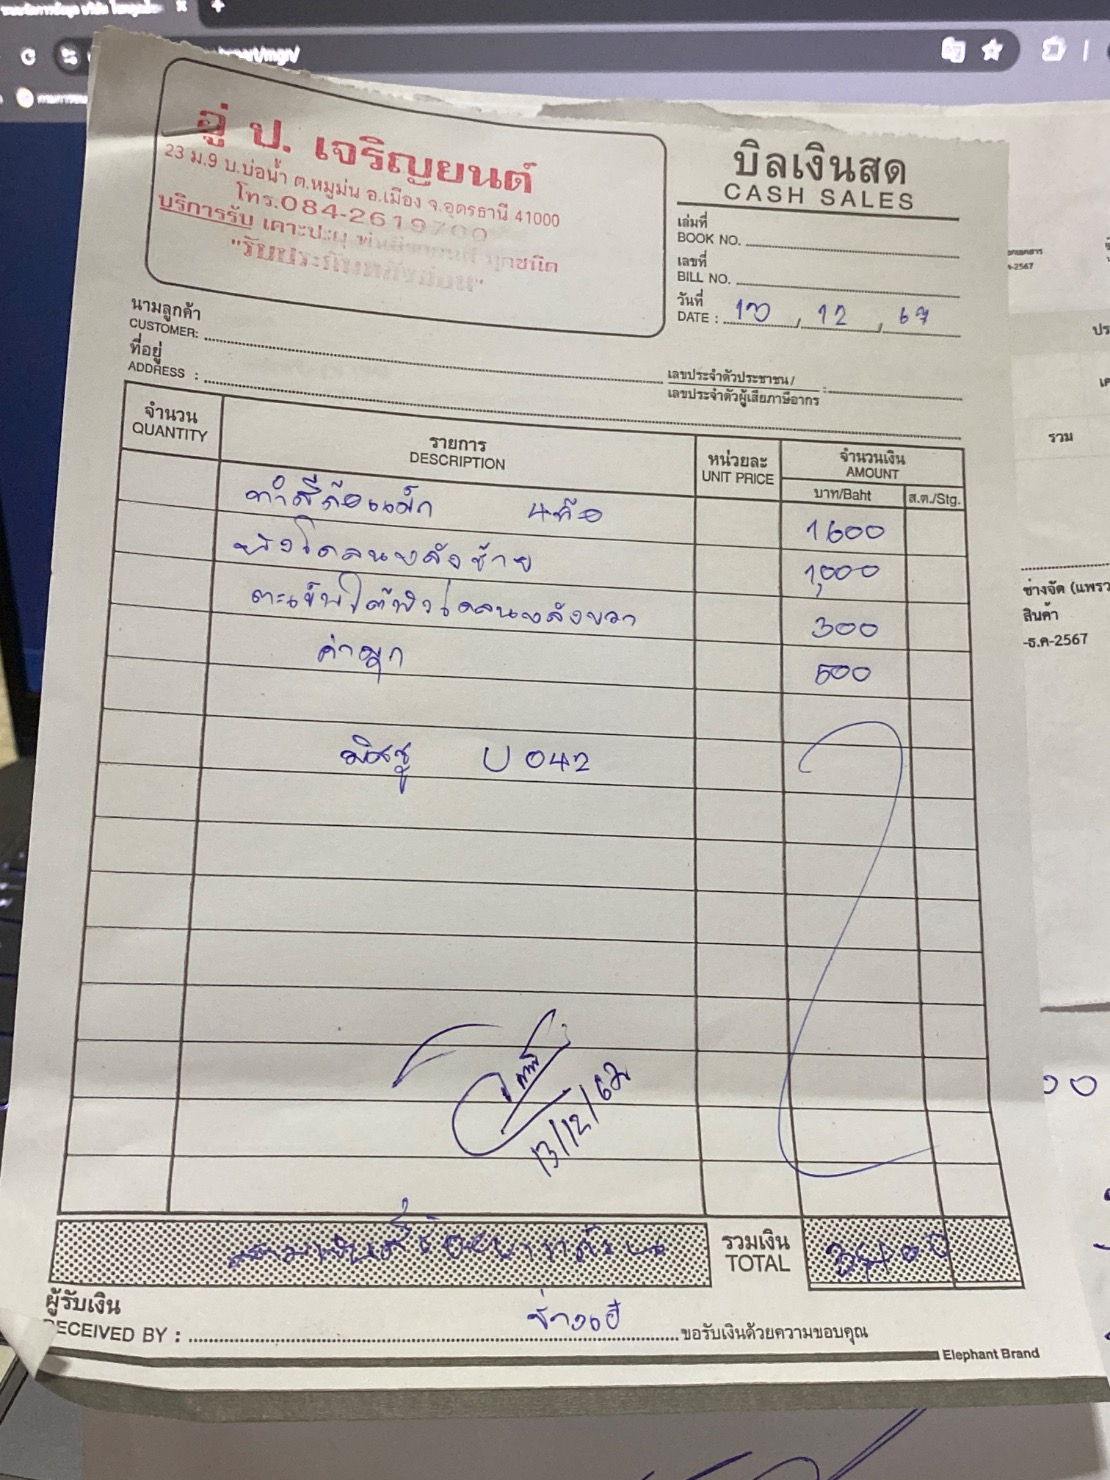 อู่ ป. เจริญยนต์
23 ม.9 บ.บ่อน้ำ ต.หมูม่น อ.เมือง จ.อุดรธานี 41000
โทร.084-2619700
บริการรับ เคาะปะผุ ทุกชนิด
"รับประกันหลังซ่อม"
บิลเงินสด
CASH SALES
เล่มที่
BOOK NO.
เลขที่
BILL NO.
วันที่
DATE : 10 , 12 , 67
นามลูกค้า
CUSTOMER:
ที่อยู่
ADDRESS :
เลขประจำตัวประชาชน /
เลขประจำตัวผู้เสียภาษีอากร :
จำนวน รายการ หน่วยละ จำนวนเงิน
QUANTITY DESCRIPTION UNIT PRICE AMOUNT
บาท/Baht ส.ต./Stg.
ทำสีล้อแม็ก 4ล้อ 1600
บังโคลนหลังซ้าย 1,000
ตะเข็บใต้บังโคลนหลังขวา 300
500
มิตซู U 042
13/12/67
สามพันสี่ร้อยบาทถ้วน รวมเงิน 3400
TOTAL
ผู้รับเงิน
RECEIVED BY : ขอรับเงินด้วยความขอบคุณ
Elephant Brand
-2567
รวม
ช่างจัด (แพรว
สินค้า
-ธ.ค-2567